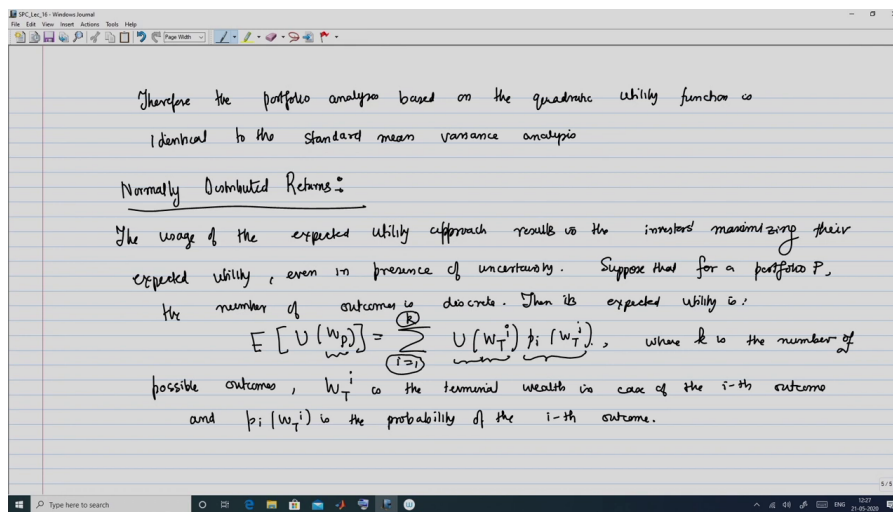 SPC_Lec_16 - Windows Journal
File Edit View Insert Actions Tools Help
Page Width
Therefore the portfolio analysis based on the quadratic utility function is
identical to the standard mean variance analysis
Normally Distributed Returns:
The usage of the expected utility approach results in the investors' maximizing their
expected utility, even in presence of uncertainty. Suppose that for a portfolio P,
the number of outcomes is discrete. Then its expected utility is:
E[U(W_P)] = ∑_{i=1}^{k} U(W_T^i) p_i(W_T^i), where k is the number of
possible outcomes, W_T^i is the terminal wealth in case of the i-th outcome
and p_i(W_T^i) is the probability of the i-th outcome.
5/5
Type here to search
ENG
12:27
21-05-2020